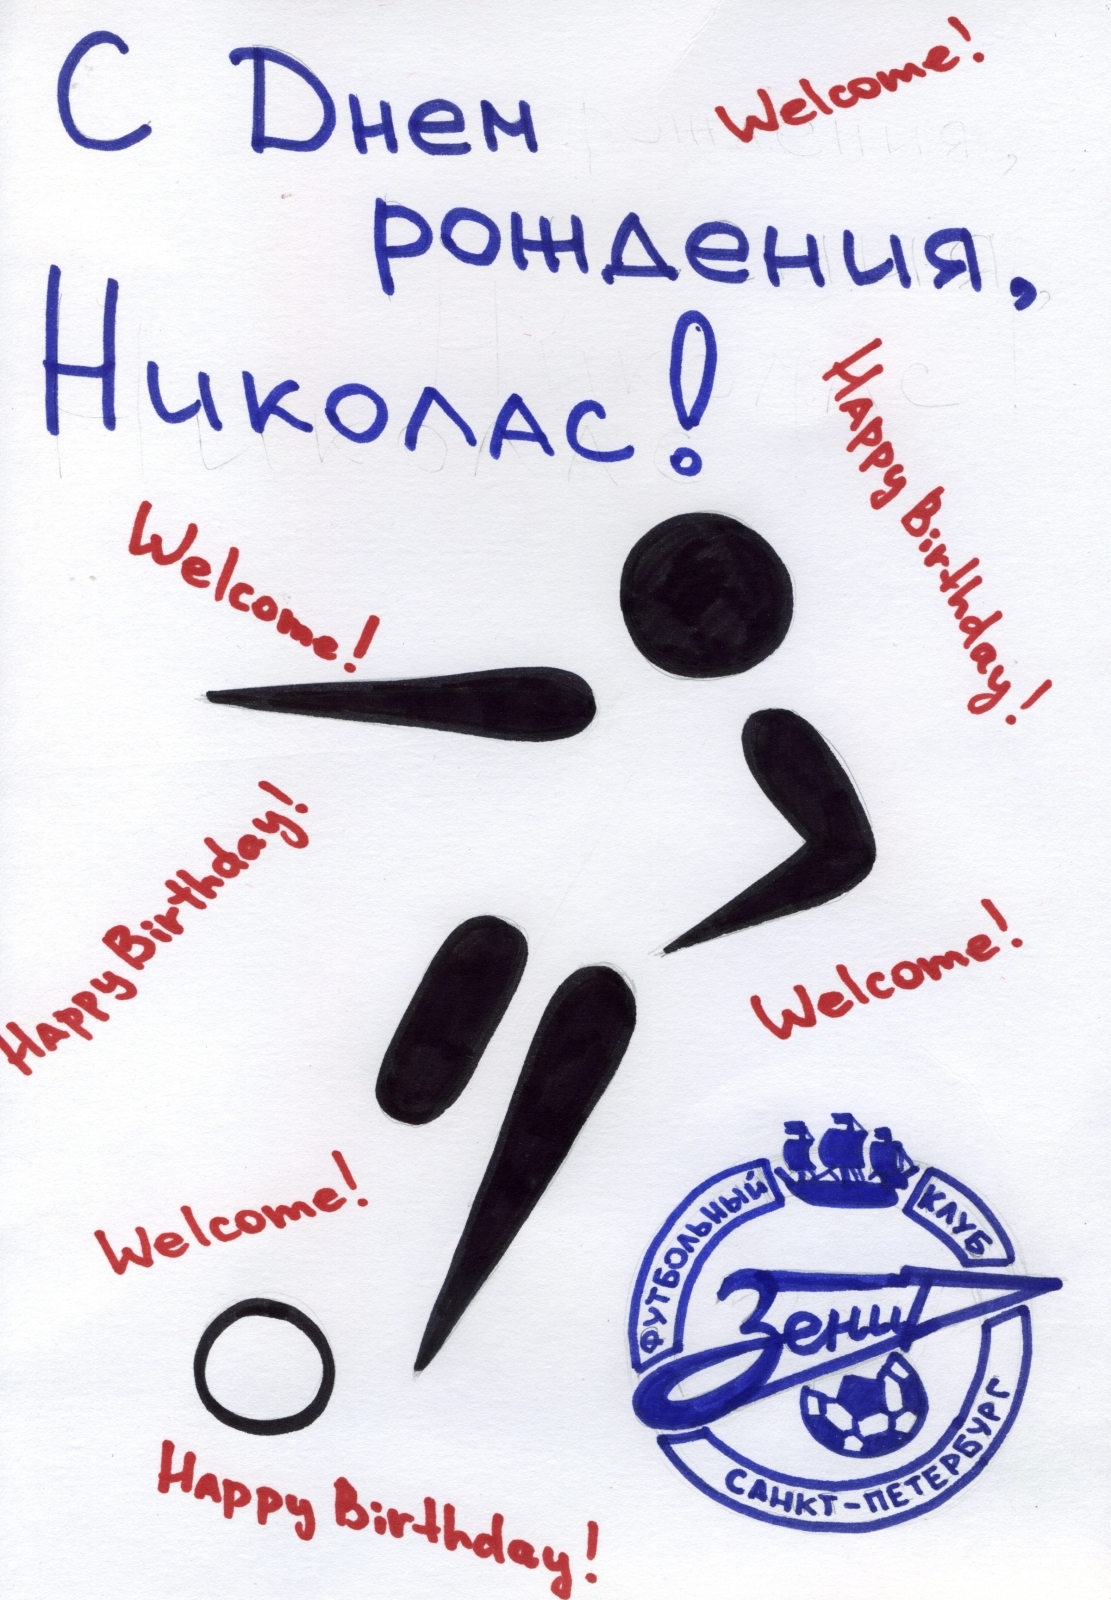 С Днем
Welcome!
рождения,
Николас!
Happy Birthday!
Welcome!
Happy Birthday!
Welcome!
Welcome!
ФУТБОЛЬНЫЙ
КЛУБ
Зенит
САНКТ-ПЕТЕРБУРГ
Happy Birthday!